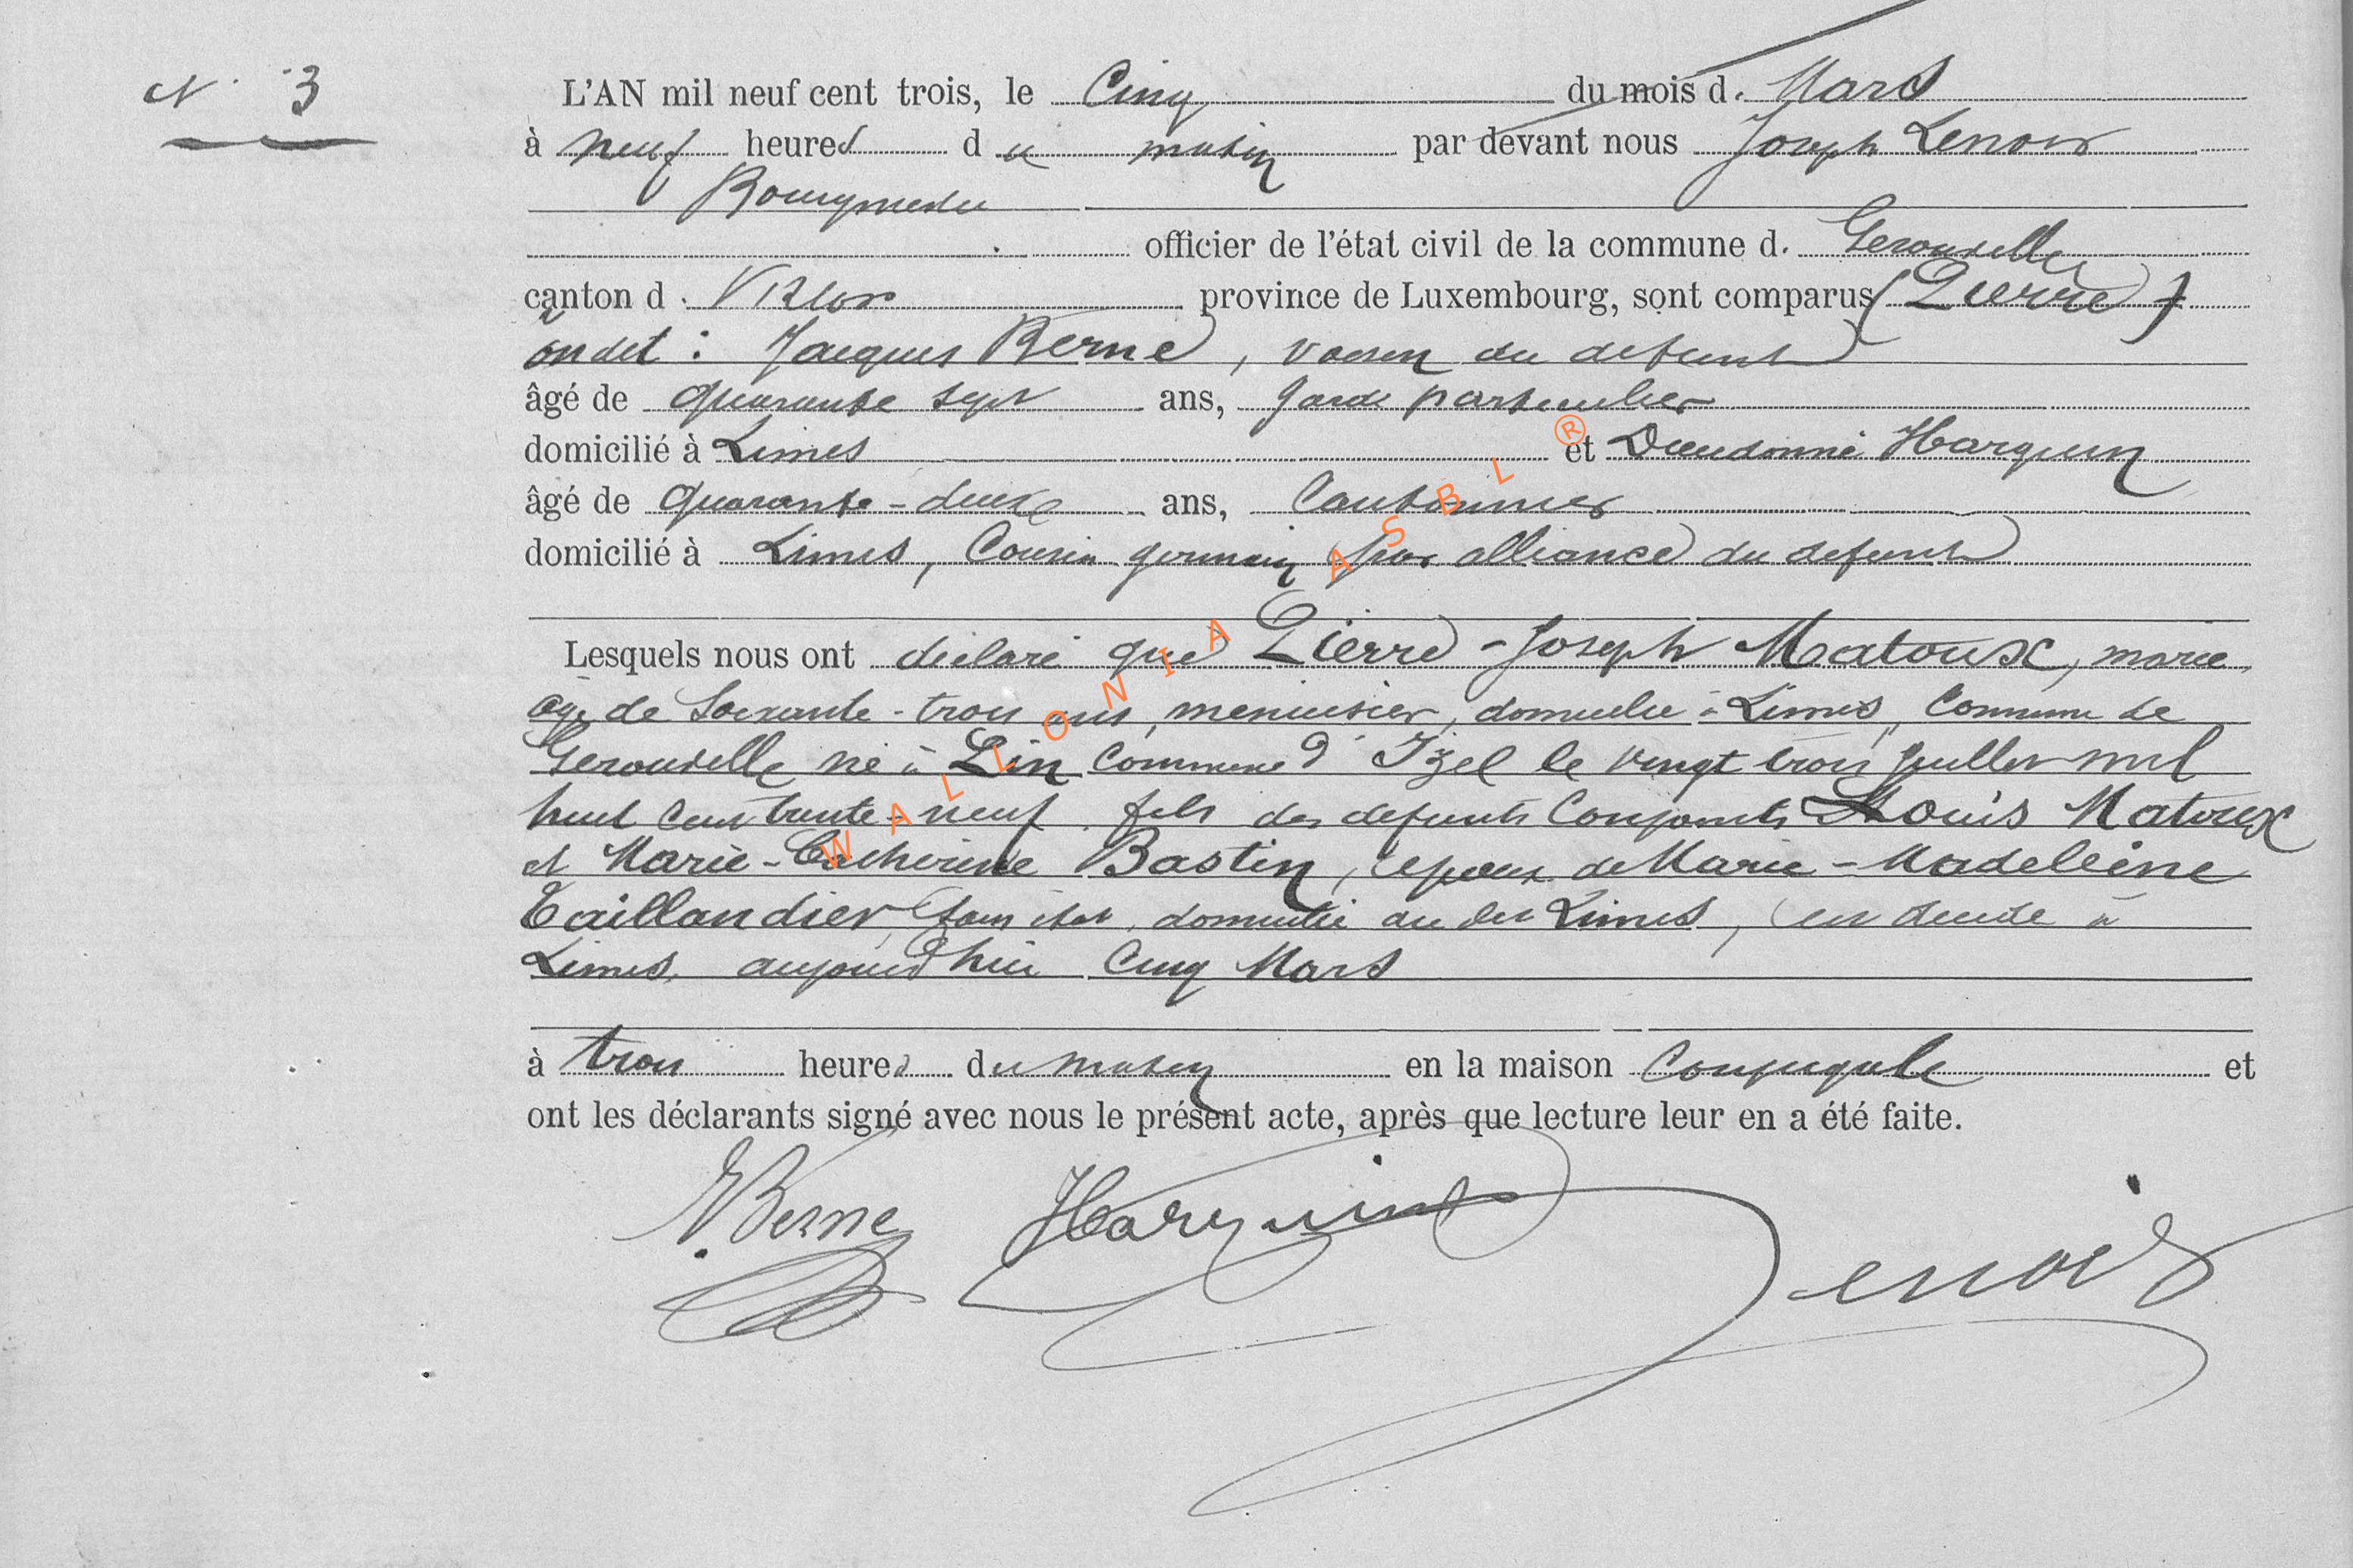 N° 3
L'AN mil neuf cent trois, le Cinq du mois d. Mars
à neuf heures du matin par devant nous Joseph Lenoir
Bourgmestre
officier de l'état civil de la commune d. Gerouville
canton d. Virton province de Luxembourg, sont comparus (Pierre)
on dit : Jacques Berne, voisin du defunt
âgé de quarante sept ans, garde particulier
domicilié à Limes et Dieudonné Harquin
âgé de quarante-deux ans, Cantonnier
domicilié à Limes, Cousin germain par alliance du defunt
Lesquels nous ont déclaré que Pierre-Joseph Matoux, marié,
âgé de Soixante-trois ans, menuisier, domicilié à Limes, Commune de
Gerouville né à Pin Commune d'Izel le vingt trois juillet mil
huit cent trente-neuf fils des defunts Conjoints Louis Matoux
et Marie-Catherine Bastin, époux de Marie-Madeleine
Taillandier, sans état, domiciliée au dit Limes, est décédé à
Limes, aujourd'hui Cinq Mars
à trois heures du matin en la maison Conjugale et
ont les déclarants signé avec nous le présent acte, après que lecture leur en a été faite.
Berne Harquin Lenoir
WALLONIA ASBL ®